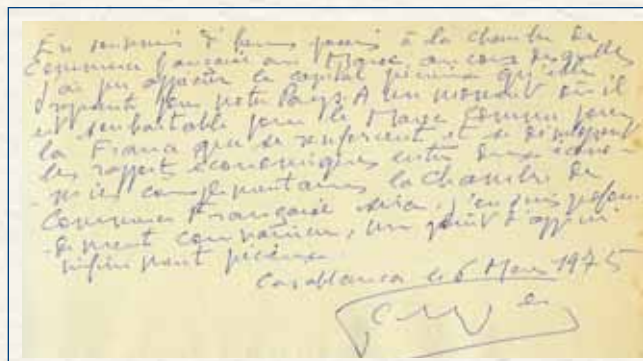 En souvenir d'heures passées à la chambre de
Commerce française au Maroc, au cours desquelles
j'ai pu apprécier le capital précieux qu'elle
représente pour notre Pays. A un moment où il
est souhaitable pour le Maroc comme pour
la France que se renforcent et se développent
les rapports économiques entre deux écono-
mies complémentaires la Chambre de
Commerce Française sera, j'en suis profon-
dément convaincu, un point d'appui
infiniment précieux.
Casablanca le 6 Mars 1975